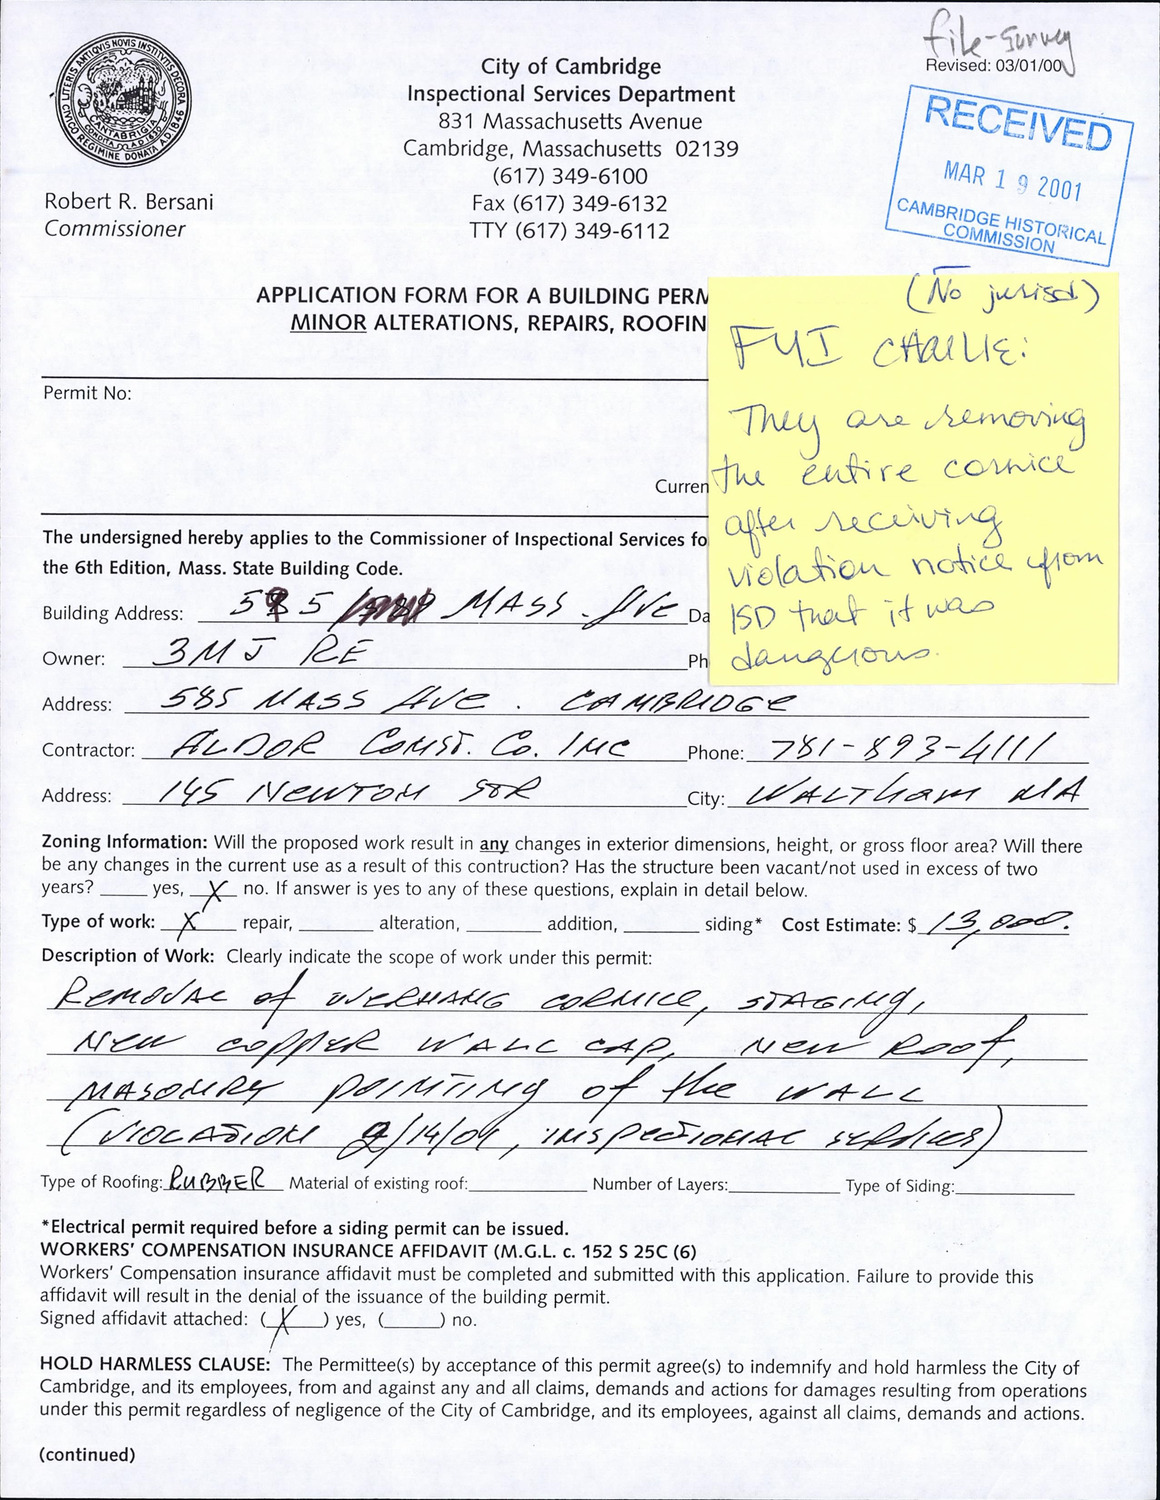 file-survey
Revised: 03/01/00
CIVICO REGIMINE DONATA A.D. 1846
LITERIS ANTIQVIS NOVIS INSTITVTIS DECORA
CANTABRIGIA
City of Cambridge
Inspectional Services Department
831 Massachusetts Avenue
Cambridge, Massachusetts 02139
(617) 349-6100
Fax (617) 349-6132
TTY (617) 349-6112
RECEIVED
MAR 19 2001
CAMBRIDGE HISTORICAL
COMMISSION
Robert R. Bersani
Commissioner
(No jurisd)
FYI CHARLIE:
They are removing
the entire cornice
after receiving
violation notice from
ISD that it was
dangerous.
APPLICATION FORM FOR A BUILDING PERM
MINOR ALTERATIONS, REPAIRS, ROOFIN
Permit No:
Curren
The undersigned hereby applies to the Commissioner of Inspectional Services fo
the 6th Edition, Mass. State Building Code.
Building Address: MASS. AVE Da
Owner: 3MJ RE Ph
Address: 585 MASS AVE. CAMBRIDGE
Contractor: ALDOR CONST. CO. INC Phone: 781-893-4111
Address: 145 NEWTON STR City: WALTHAM MA
Zoning Information: Will the proposed work result in any changes in exterior dimensions, height, or gross floor area? Will there
be any changes in the current use as a result of this contruction? Has the structure been vacant/not used in excess of two
years? ____ yes, X no. If answer is yes to any of these questions, explain in detail below.
Type of work: X repair, ____ alteration, ____ addition, ____ siding* Cost Estimate: $ 13,000.
Description of Work: Clearly indicate the scope of work under this permit:
REMOVAL of OVERHANG CORNICE, STAGING,
NEW COPPER WALL CAP, NEW ROOF,
MASONRY POINTING of the WALL
(VIOLATION 2/14/01, INSPECTIONAL SERVICES)
Type of Roofing: RUBBER Material of existing roof: ____ Number of Layers: ____ Type of Siding: ____
*Electrical permit required before a siding permit can be issued.
WORKERS' COMPENSATION INSURANCE AFFIDAVIT (M.G.L. c. 152 S 25C (6)
Workers' Compensation insurance affidavit must be completed and submitted with this application. Failure to provide this
affidavit will result in the denial of the issuance of the building permit.
Signed affidavit attached: (X) yes, (____) no.
HOLD HARMLESS CLAUSE: The Permittee(s) by acceptance of this permit agree(s) to indemnify and hold harmless the City of
Cambridge, and its employees, from and against any and all claims, demands and actions for damages resulting from operations
under this permit regardless of negligence of the City of Cambridge, and its employees, against all claims, demands and actions.
(continued)